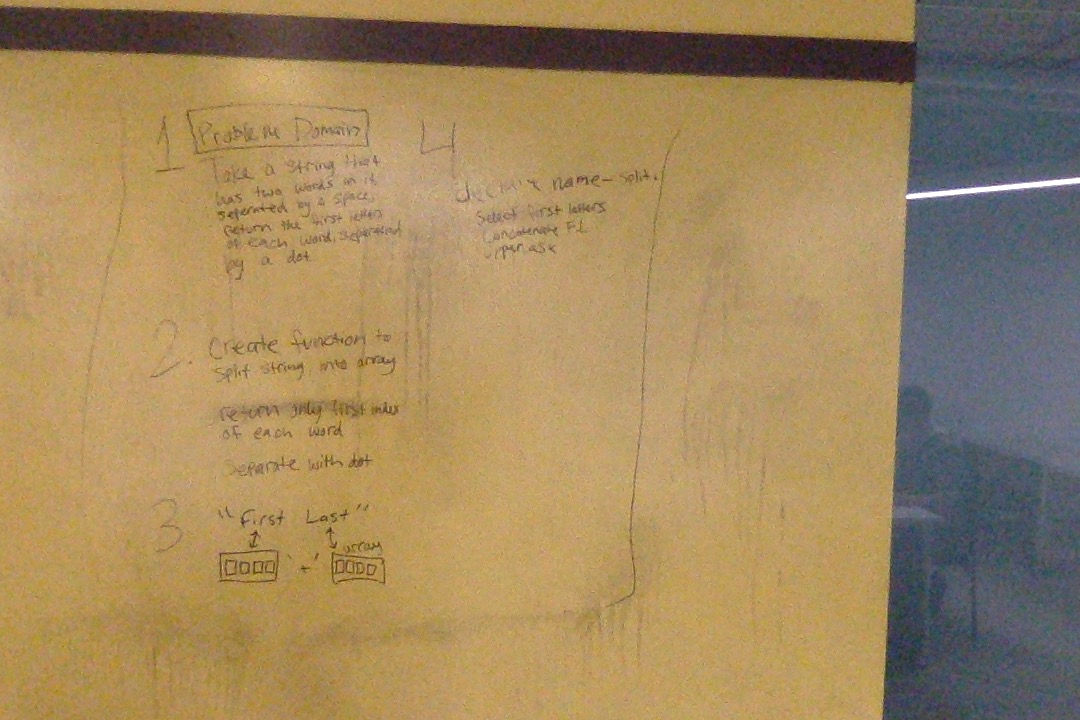 1 Problem Domain
Take a string that
has two words in it,
seperated by a space,
return the first letters
of each word, seperated
by a dot
2. Create function to
split string into array
return only first index
of each word
Separate with dot
3 "First Last"
array
'+'
4
name - split.
Select first letters
Concatenate F.L